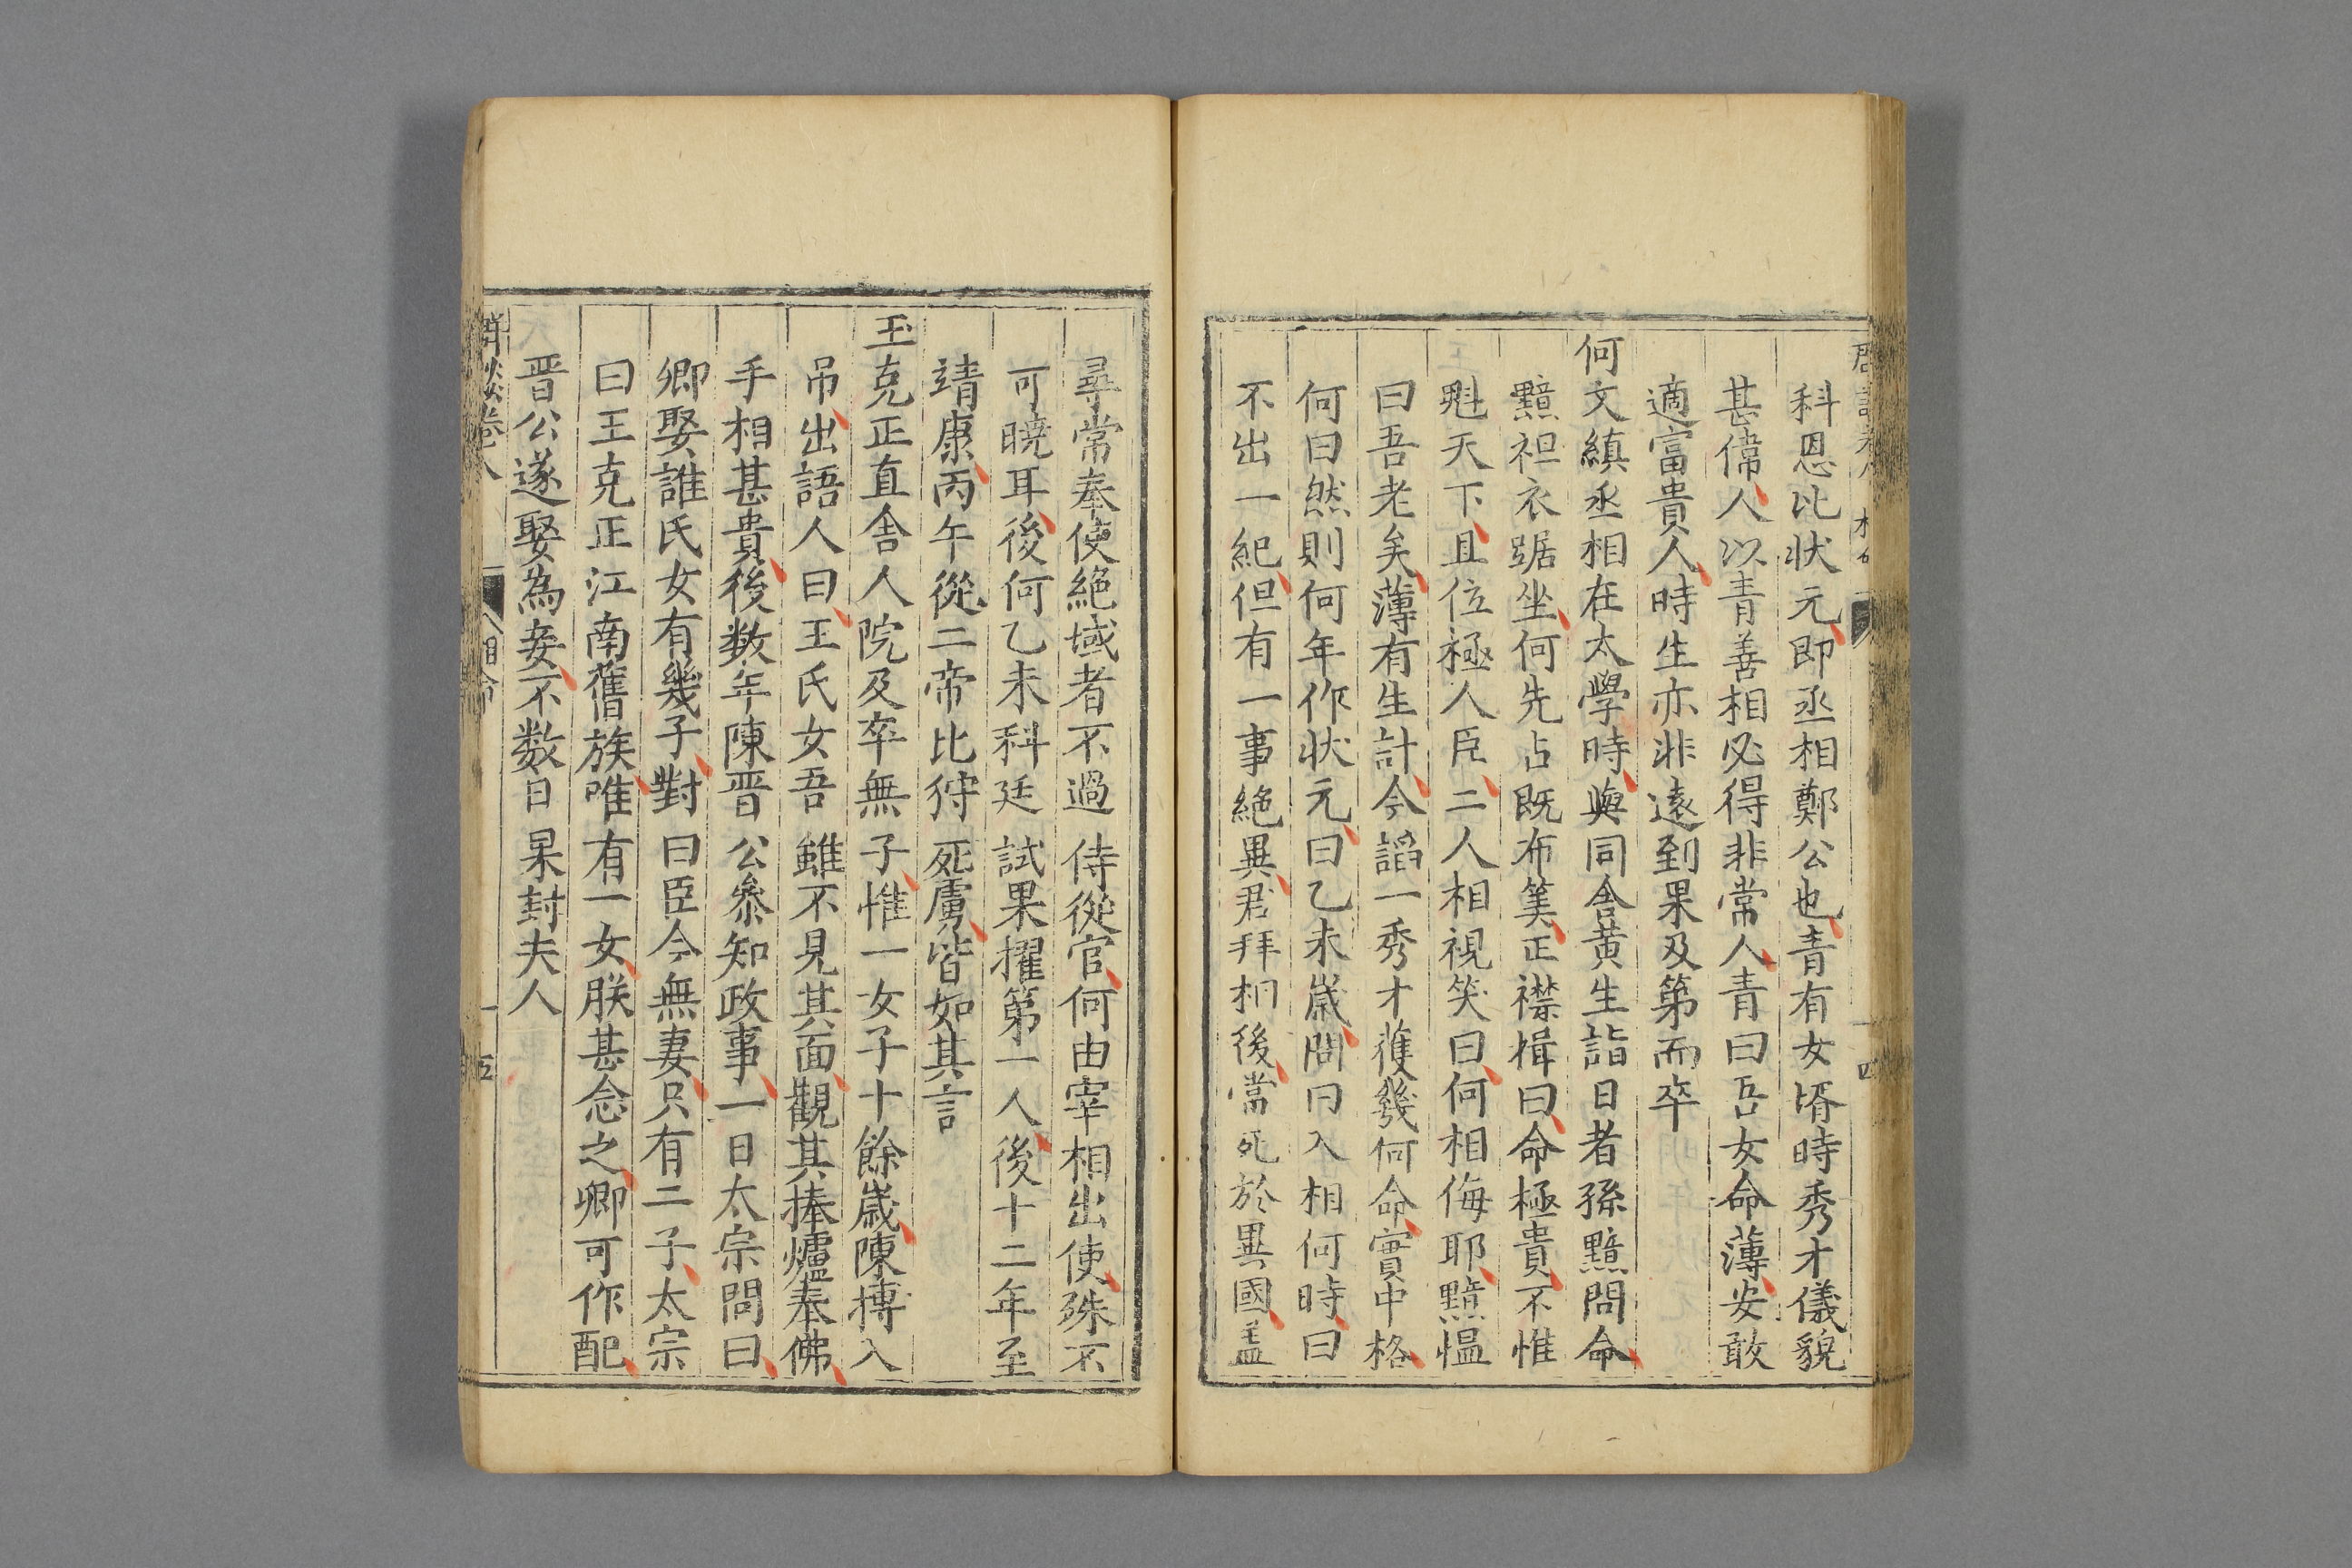 科恩比状元即丞相鄭公也青有女壻時秀才儀貌
甚偉人以青善相必得非常人青曰吾女命薄安敢
適富貴人時生亦非遠到果及第而卒
何文縝丞相在太學時與同舍黄生詣日者孫黯問命
黯袒衣踞坐何先占既布筭正襟揖曰命極貴不惟
魁天下且位極人臣二人相視笑曰何相侮耶黯愠
曰吾老矣薄有生計今謟一秀才獲幾何命實中格
何曰然則何年作狀元曰乙未歲問曰入相何時曰
不出一紀但有一事絶異君拜相後當死於異國盖
尋常奉使絶域者不過侍從官何由宰相出使殊不
可曉耳後何乙未科廷試果擢第一人後十二年至
靖康丙午從二帝北狩死虜皆如其言
王克正直舍人院及卒無子惟一女子十餘歲陳摶入
吊出語人曰王氏女吾雖不見其面觀其捧爐奉佛
手相甚貴後数年陳晋公叅知政事一日太宗問曰
卿娶誰氏女有幾子對曰臣今無妻只有二子太宗
曰王克正江南舊族唯有一女朕甚念之卿可作配
晋公遂娶為妾不数日杲封夫人
卷八
相命
五